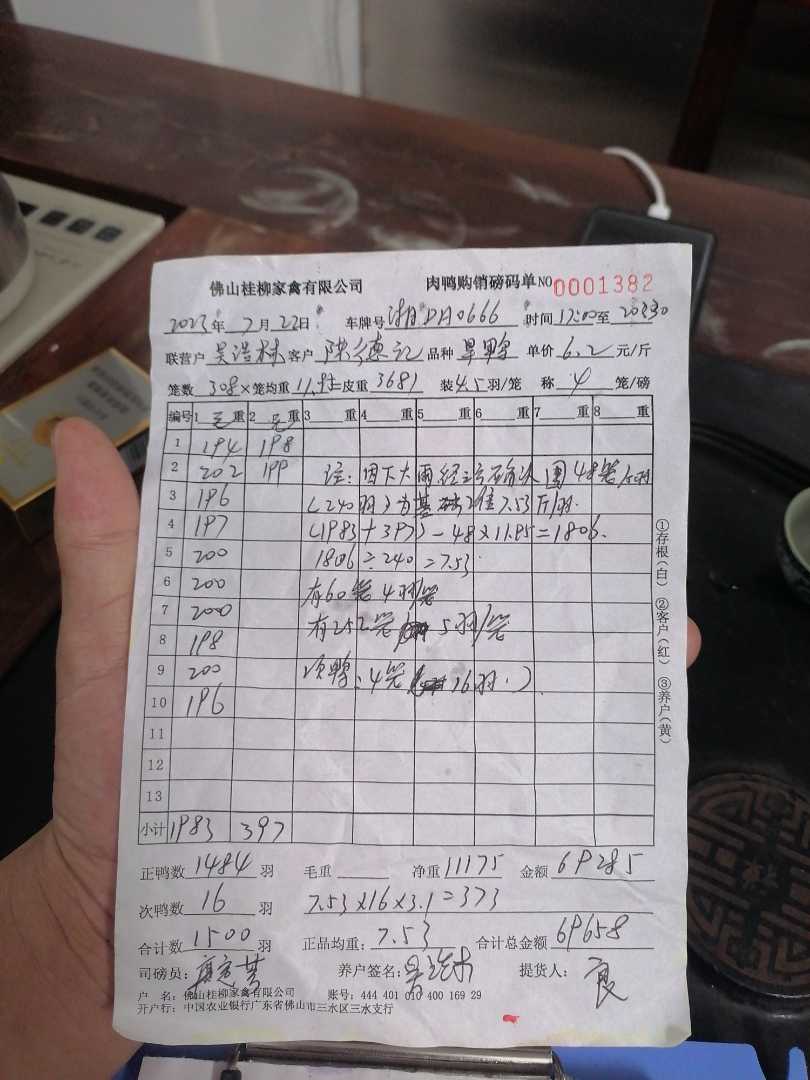 佛山桂柳家禽有限公司 肉鸭购销磅码单 NO 0001382
2023年 7月22日 车牌号 湘DA0666 时间 17:00至 20:30
联营户 吴浩林 客户 陈德记 品种 旱鸭 单价 6.2 元/斤
笼数 308×笼均重 11.95 皮重 3681 装4.5羽/笼 称 4 笼/磅
编号 1 毛 重 2 毛 重 3 重 4 重 5 重 6 重 7 重 8 重
1 194 198
2 202 199 注:因下大雨经三方确认 围48笼 5羽
3 196 (240羽)为基础准7.53斤/羽.
4 197 (1983+397)-48×11.95=1806.
5 200 1806÷240=7.53.
6 200 有60笼 4羽/笼
7 200 有252笼 5羽/笼
8 198
9 200 次鸭:4笼 16羽.)
10 196
11
12
13
小计 1983 397
正鸭数 1484 羽 毛重 净重 11175 金额 69285
次鸭数 16 羽 7.53×16×3.1=373
合计数 1500 羽 正品均重: 7.53 合计总金额 69658
司磅员: 养户签名: 提货人:
户 名:佛山桂柳家禽有限公司 账号:444 401 010 400 169 29
开户行:中国农业银行广东省佛山市三水区三水支行
①存根(白) ②客户(红) ③养户(黄)